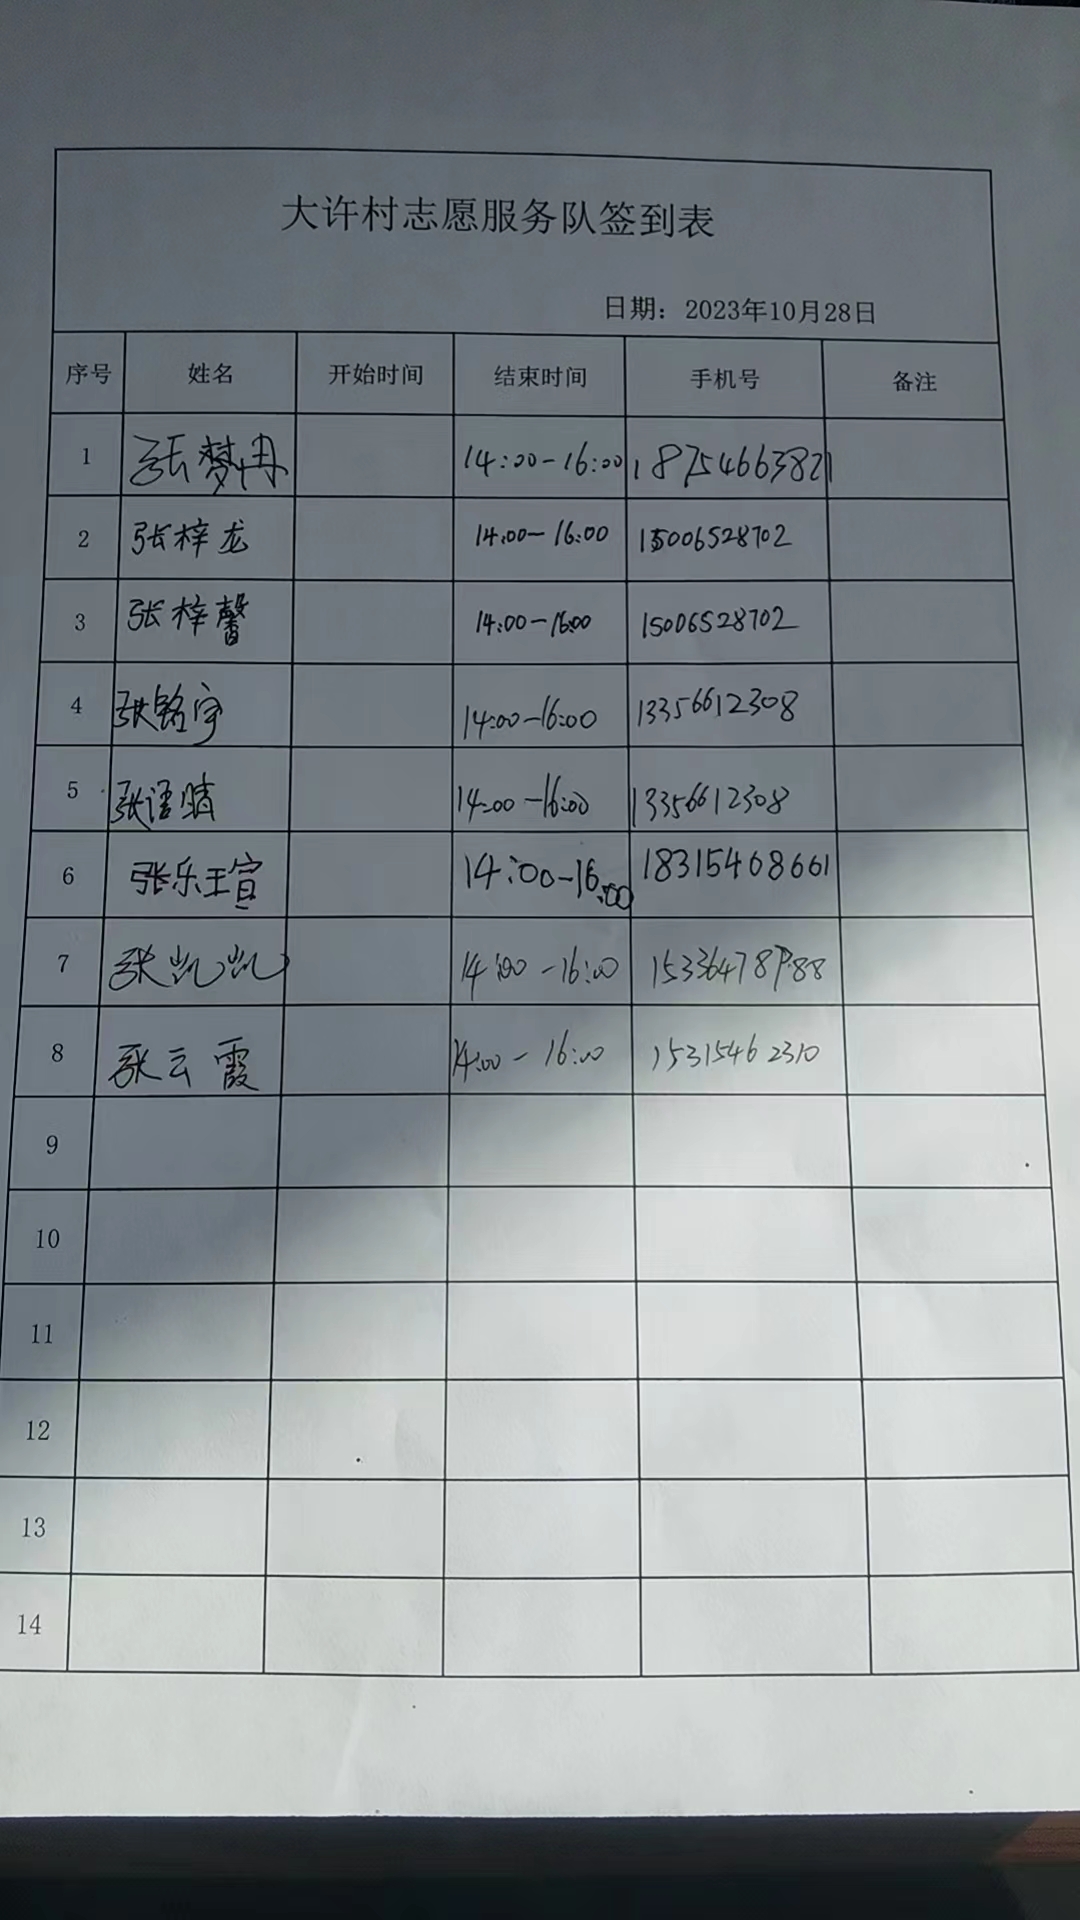 大许村志愿服务队签到表
日期：2023年10月28日
序号 姓名 开始时间 结束时间 手机号 备注
1 张梦冉 14:00-16:00 18754663821
2 张梓龙 14:00-16:00 15006528702
3 张梓馨 14:00-16:00 15006528702
4 张铭宇 14:00-16:00 13356612308
5 张语晴 14:00-16:00 13356612308
6 张乐瑄 14:00-16:00 18315468661
7 张凯凯 14:00-16:00
8 张云霞 14:00-16:00 15315462310
9
10
11
12
13
14